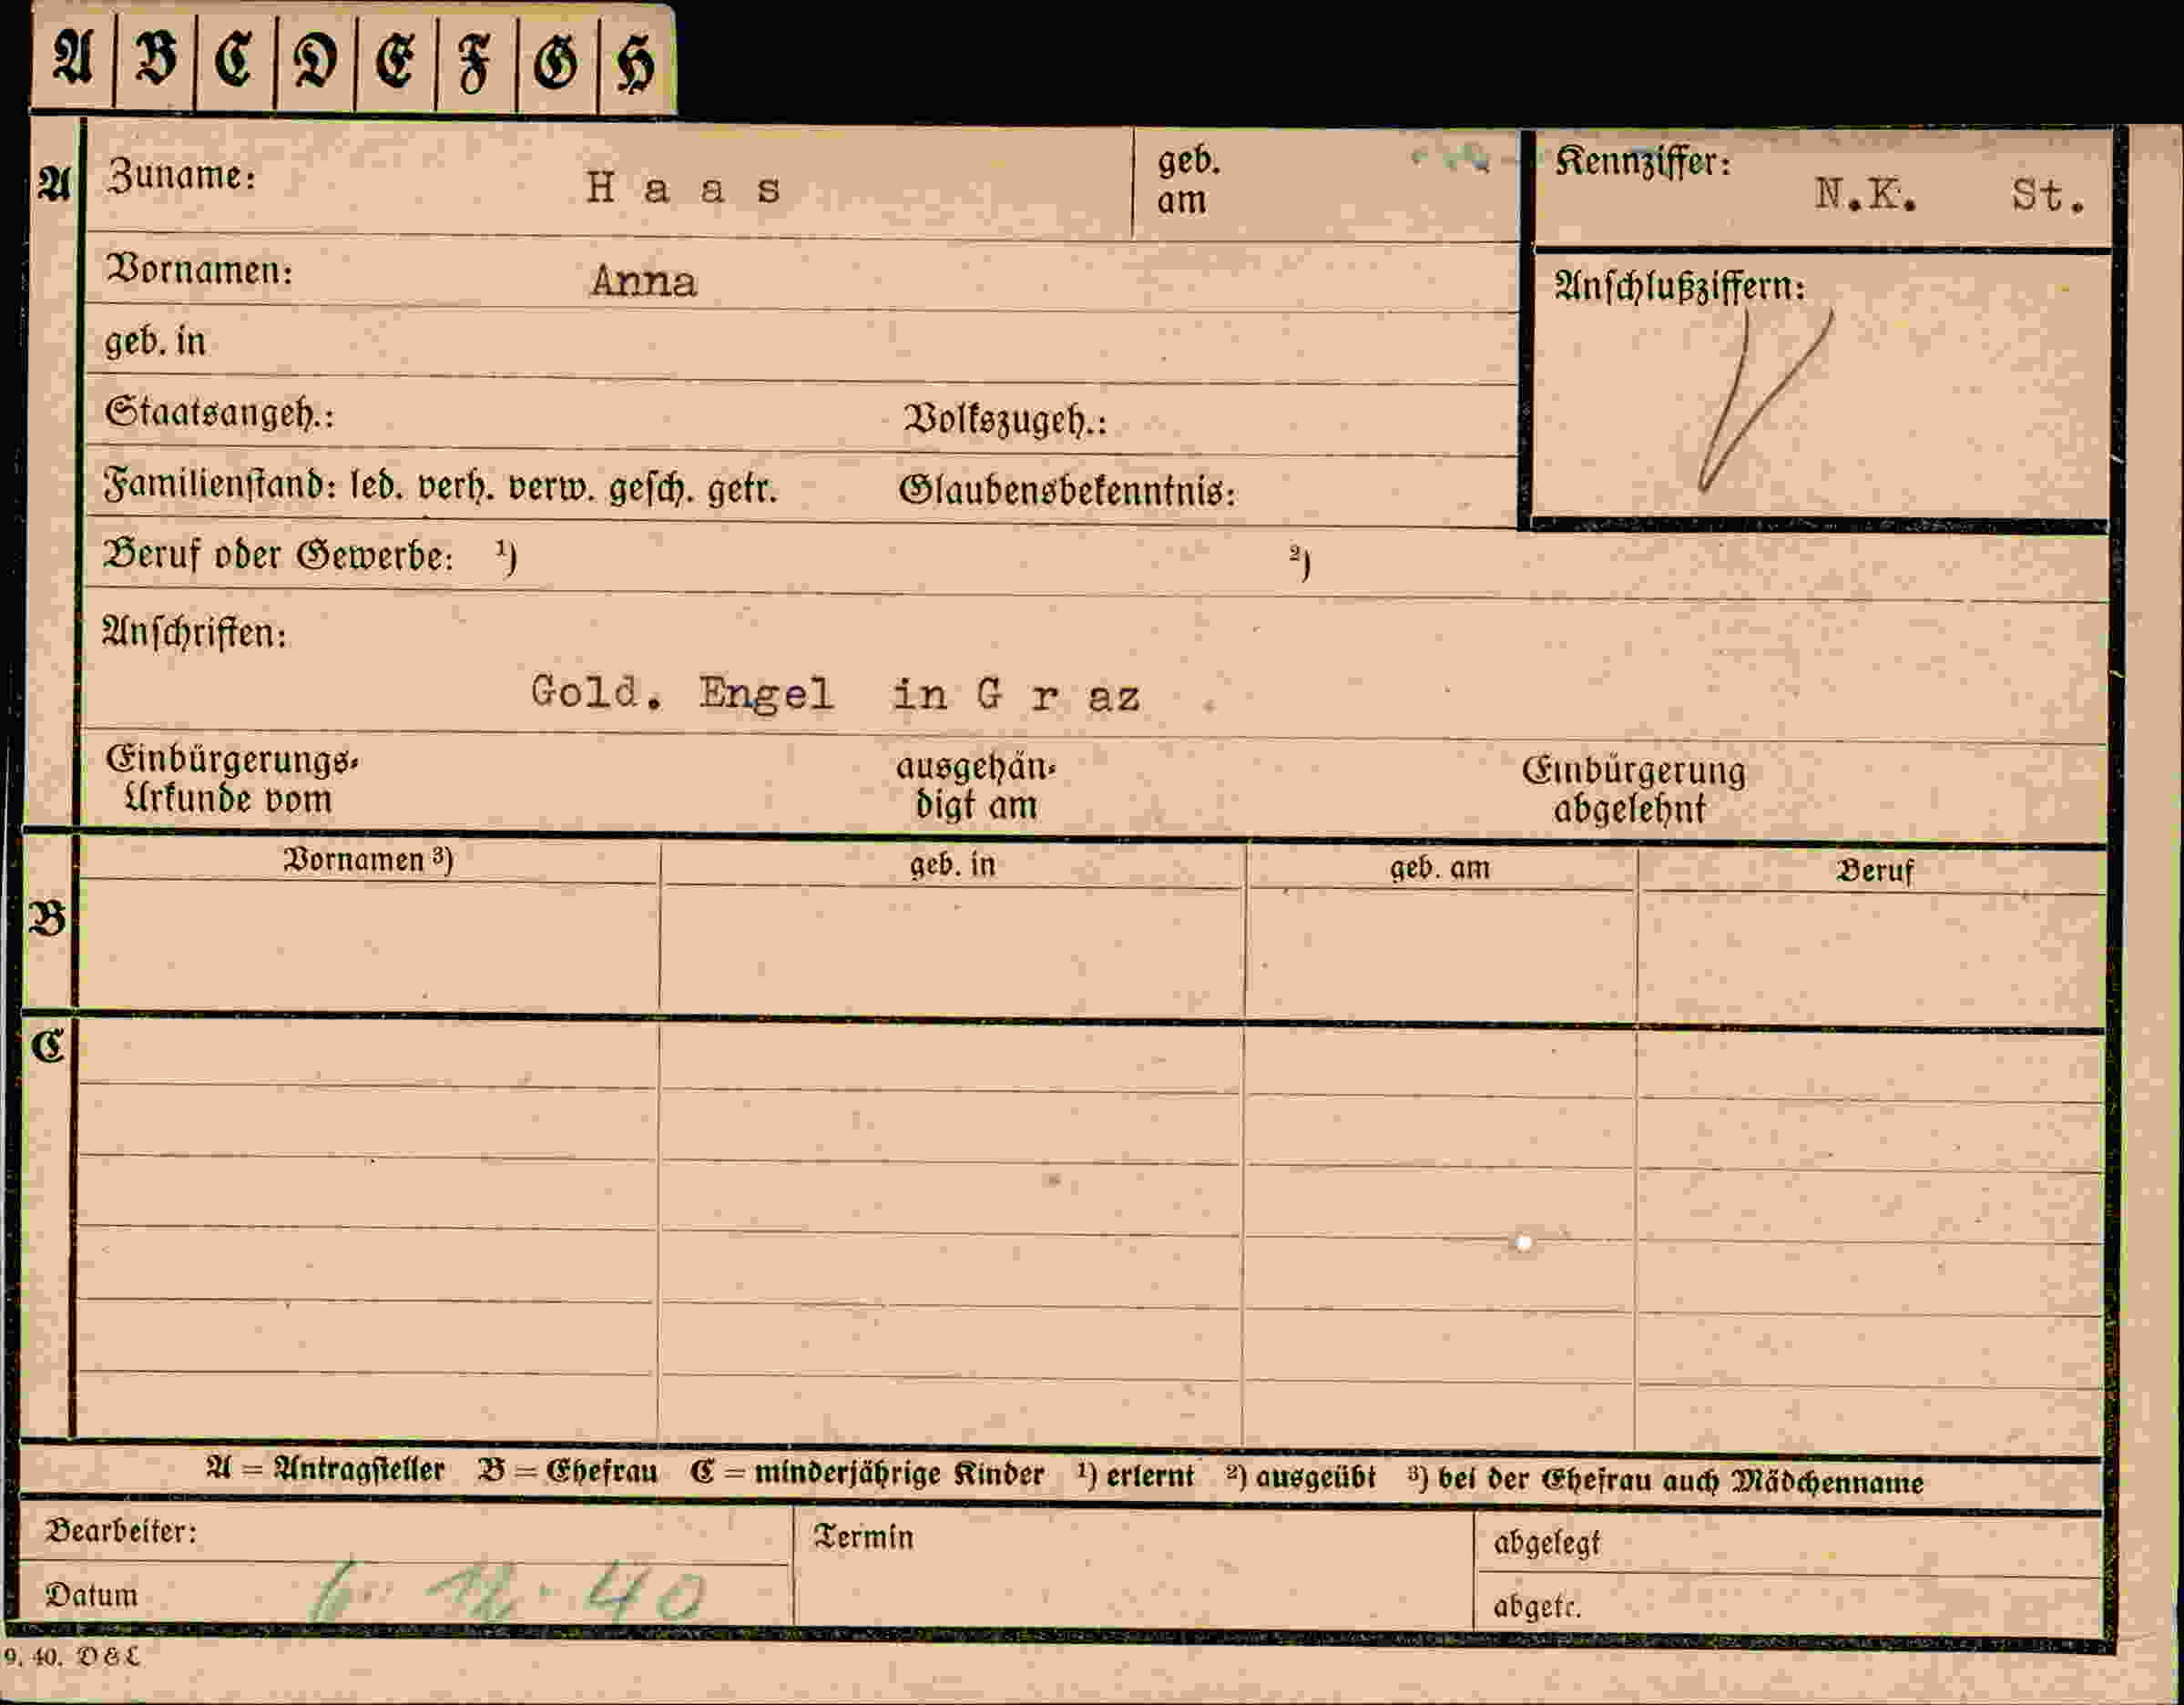 A B C D E F G H
A Zuname: Haas geb. am Kennziffer: N.K. St.
Vornamen: Anna Anschlußziffern:
geb. in
Staatsangeh.: Volkszugeh.:
Familienstand: led. verh. verw. gesch. getr. Glaubensbekenntnis:
Beruf oder Gewerbe: ¹) ²)
Anschriften:
Gold. Engel in Graz
Einbürgerungs- ausgehän- Einbürgerung
Urkunde vom digt am abgelehnt
Vornamen ³) geb. in geb. am Beruf
B
C
A = Antragsteller B = Ehefrau C = minderjährige Kinder ¹) erlernt ²) ausgeübt ³) bei der Ehefrau auch Mädchenname
Bearbeiter: Termin abgelegt
Datum 6. 12. 40 abgetr.
9. 40. D & L